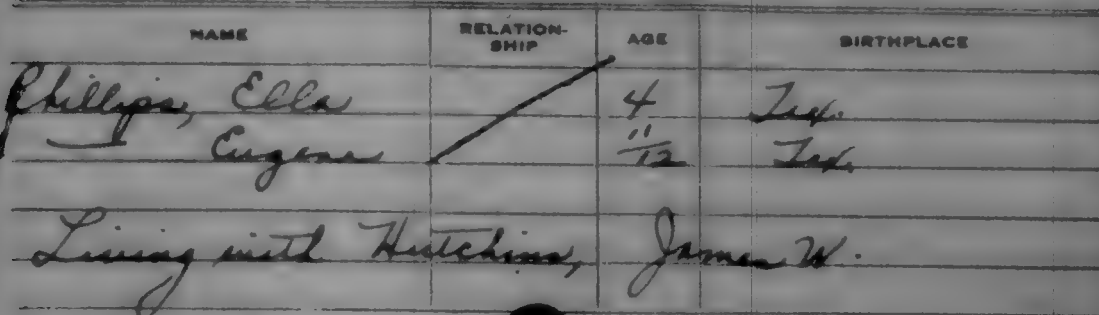 NAME RELATION-SHIP AGE BIRTHPLACE
Phillips, Ella 4 Tex.
— Eugene 11/12 Tex.
Living with Hutchins, James W.